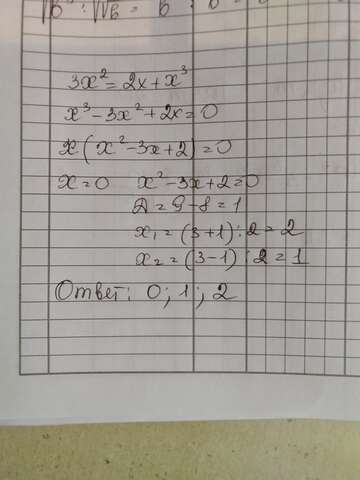 3x² = 2x + x³
x³ - 3x² + 2x = 0
x(x² - 3x + 2) = 0
x = 0 x² - 3x + 2 = 0
D = 9 - 8 = 1
x₁ = (3 + 1) : 2 = 2
x₂ = (3 - 1) : 2 = 1
Ответ: 0; 1; 2